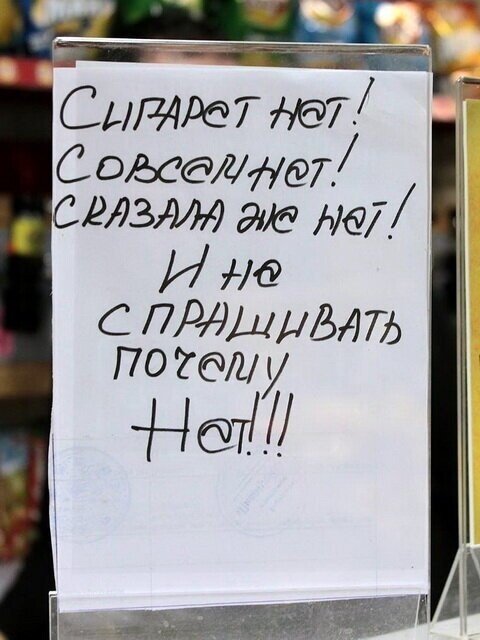 Сигарет нет!
Совсем нет!
Сказала же нет!
И не
спрашивать
почему
Нет!!!